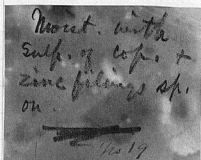 Moist. with
Sulp. of cop. +
zinc filings sp.
on.
No 19